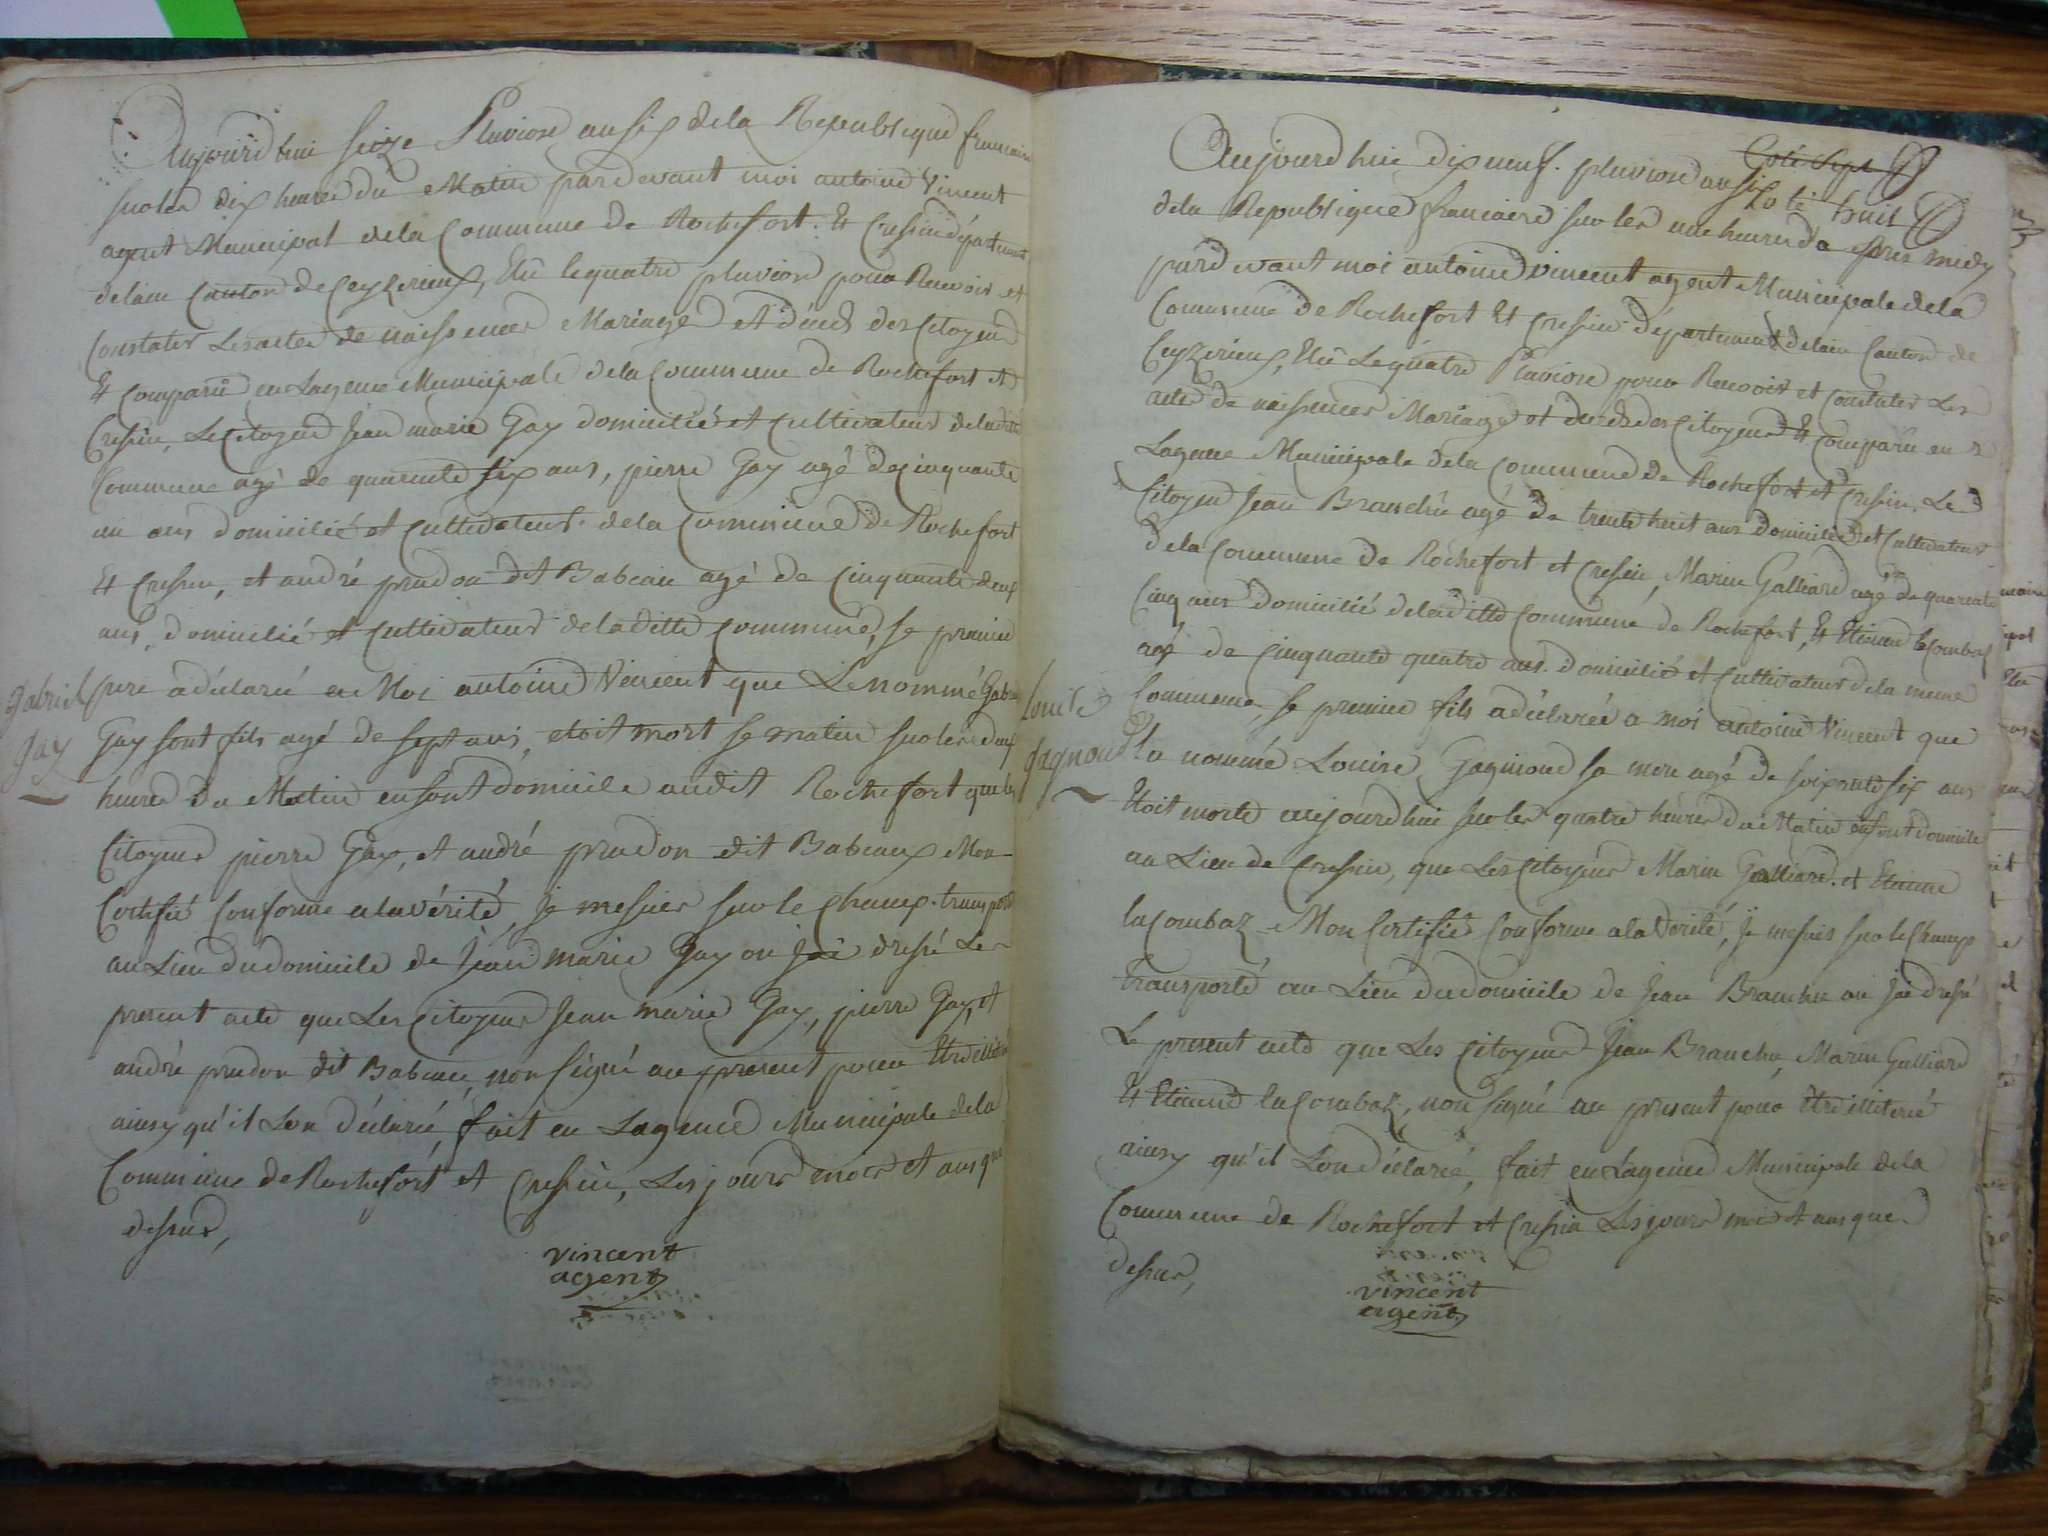 Aujourd'hui seize Pluviose an six de la Republique francaise
sur les dix heures du Matin pardevant moi antoine Vincent
agent Municipal de la Commune de Rochefort Et Cressin département
delain Canton de Ceyzerieux, Elû le quatre pluviose pour Recevoir et
Constater Les actes de naissences Mariages et décès des Citoyens
Et comparû en Lagence Municipale de la Commune de Rochefort et
Cressin, Le Citoyen Jean marie Gay domicilié et cultivateur de laditte
Commune agé de quarente six ans, pierre Gay agé de cinquante
un ans domicilié et cultivateur de la Commune de Rochefort
Et Cressin, et andré prudon dit Babeau agé de cinquante deux
ans, domicilié et cultivateur de laditte commune, se premier
Gabriel
Gay
pere a déclarré a Moi antoine Vincent que Le nommé Gabriel
Gay sont fils agé de sept ans, etoit mort se matin sur les deux
heures du Matin en sont domicile audit Rochefort que les
Citoyens pierre Gay, et andré prudon dit Babeaux Mon
Certifié Conforme a la vérité, Je me suis sur le champ transporté
au Lieu du domicile de Jean marie Gay ou Jai dressé Le
present acte que Les Citoyens Jean marie Gay, pierre Gay, et
andré prudon dit Babeau, non signé au present pour Etre illiteré
ainsy qu'il Lon déclarié, fait en Lagence Municipale de la
Commune de Rochefort et Cressin, Les jours mois et ans que
dessus,
vincent
agent
Coté sept
Coté huit
Aujourd'hui dix neuf pluviose an six
de la Republique francaise sur les une heures da pres midy
pardevant moi antoine vincent agent Municipale de la
Commune de Rochefort Et Cressin département delain Canton de
Ceyzerieux, Elû Le quatre Pluviose pour Recevoir et Constater Les
actes de naissences Mariage et décès des Citoyens Et comparû en
Lagence Municipale de la Commune de Rochefort et Cressin, Le
Citoyen Jean Branchu agé de trente huit ans domicilié et Cultivateur
de la Commune de Rochefort et Cressin, Marin Galliard agé de quarente
Cinq ans domicilié de laditte Commune de Rochefort, Et Etienne lacombaz
agé de cinquante quatre ans domicilié et Cultivateur de la meme
Louise
Gagnoud
Commune, se premier fils a déclarée a moi antoine Vincent que
la nommé Louise Gagnoud sa mere agé de soixante six ans
Etoit morte aujourdhui sur les quatre heures du Matin en sont domicile
au Lieu de Cressin, que Les Citoyens Marin Galliard et Etienne
lacombaz Mon Certifié Conforme a la Vérité, Je me suis sur le Champ
transporté au Lieu du domicile de Jean Branchu ou Jai dressé
Le present acte que Les Citoyens Jean Branchu, Marin Galliard
Et Etienne lacombaz, non signé au present pour Etre illiteré
ainsy qu'il Lon déclarié, fait en Lagence Municipale de la
Commune de Rochefort et Cressin Les jours mois et ans que
dessus,
vincent
agent